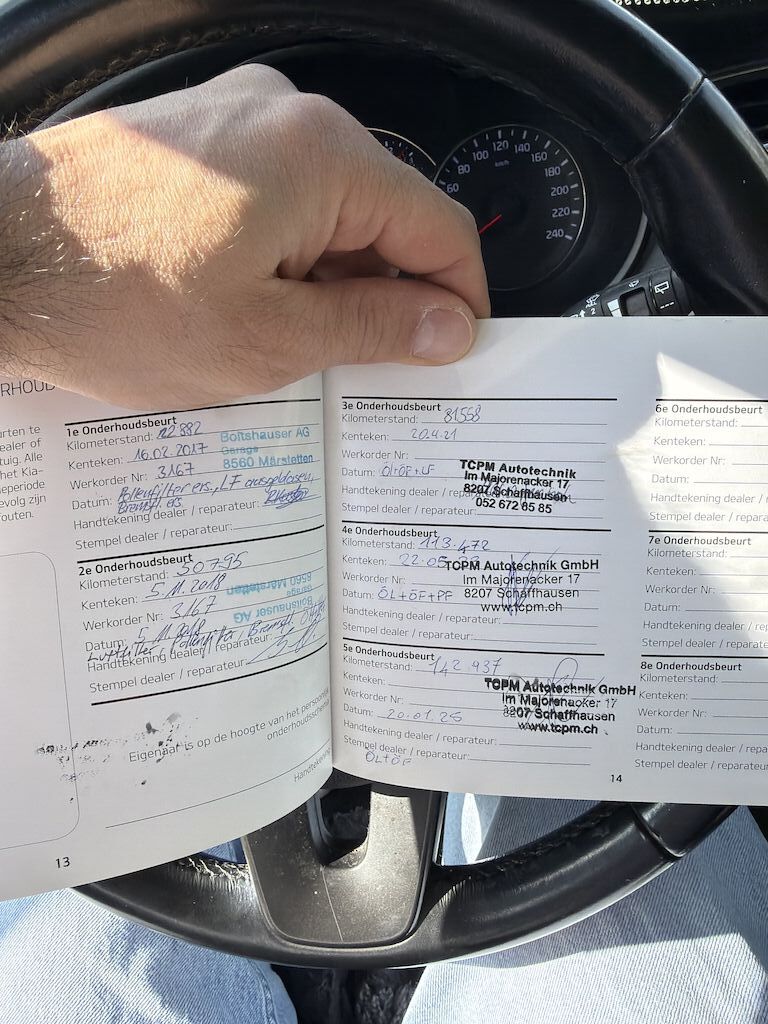 60 80 100 120 140 160 180 200 220 240
km/h
ERHOUD
arten te
ealer of
tuig. Alle
het Kia-
eperiode
evolg zijn
outen.
1e Onderhoudsbeurt
Kilometerstand: 22 882
Kenteken: 16.02.2017
Werkorder Nr: 3167
Datum: Pollenfilter ers., LF ausgeblasen,
Bremsfl. ers
Handtekening dealer / reparateur:
Stempel dealer / reparateur:
Boltshauser AG
Garage
8560 Märstetten
2e Onderhoudsbeurt
Kilometerstand: 50795
Kenteken: 5.11.2018
Werkorder Nr: 3167
Datum: 5.11.2018
Luftfilter, Pollenfilter, Bremsfl.
Handtekening dealer / reparateur:
Stempel dealer / reparateur:
Boltshauser AG
Garage
8560 Märstetten
Eigenaar is op de hoogte van het persoonlijk
onderhoudsschema
Handtekening
13
3e Onderhoudsbeurt
Kilometerstand: 81558
Kenteken: 20.4.21
Werkorder Nr:
Datum: Öl+ÖF+LF
Handtekening dealer / reparateur:
Stempel dealer / reparateur:
TCPM Autotechnik
Im Majorenacker 17
8207 Schaffhausen
052 672 85 85
4e Onderhoudsbeurt
Kilometerstand: 113.472
Kenteken: 22.05.23
Werkorder Nr:
Datum: ÖL+ÖF+PF
Handtekening dealer / reparateur:
Stempel dealer / reparateur:
TCPM Autotechnik GmbH
Im Majorenacker 17
8207 Schaffhausen
www.tcpm.ch
5e Onderhoudsbeurt
Kilometerstand: 142 937
Kenteken:
Werkorder Nr:
Datum: 20.01.25
Handtekening dealer / reparateur:
Stempel dealer / reparateur:
ÖL+ÖF
TCPM Autotechnik GmbH
Im Majorenacker 17
8207 Schaffhausen
www.tcpm.ch
14
6e Onderhoudsbeurt
Kilometerstand:
Kenteken:
Werkorder Nr:
Datum:
Handtekening dealer / repara
Stempel dealer / reparateur:
7e Onderhoudsbeurt
Kilometerstand:
Kenteken:
Werkorder Nr:
Datum:
Handtekening dealer / repara
Stempel dealer / reparateur:
8e Onderhoudsbeurt
Kilometerstand:
Kenteken:
Werkorder Nr:
Datum:
Handtekening dealer / repara
Stempel dealer / reparateur: